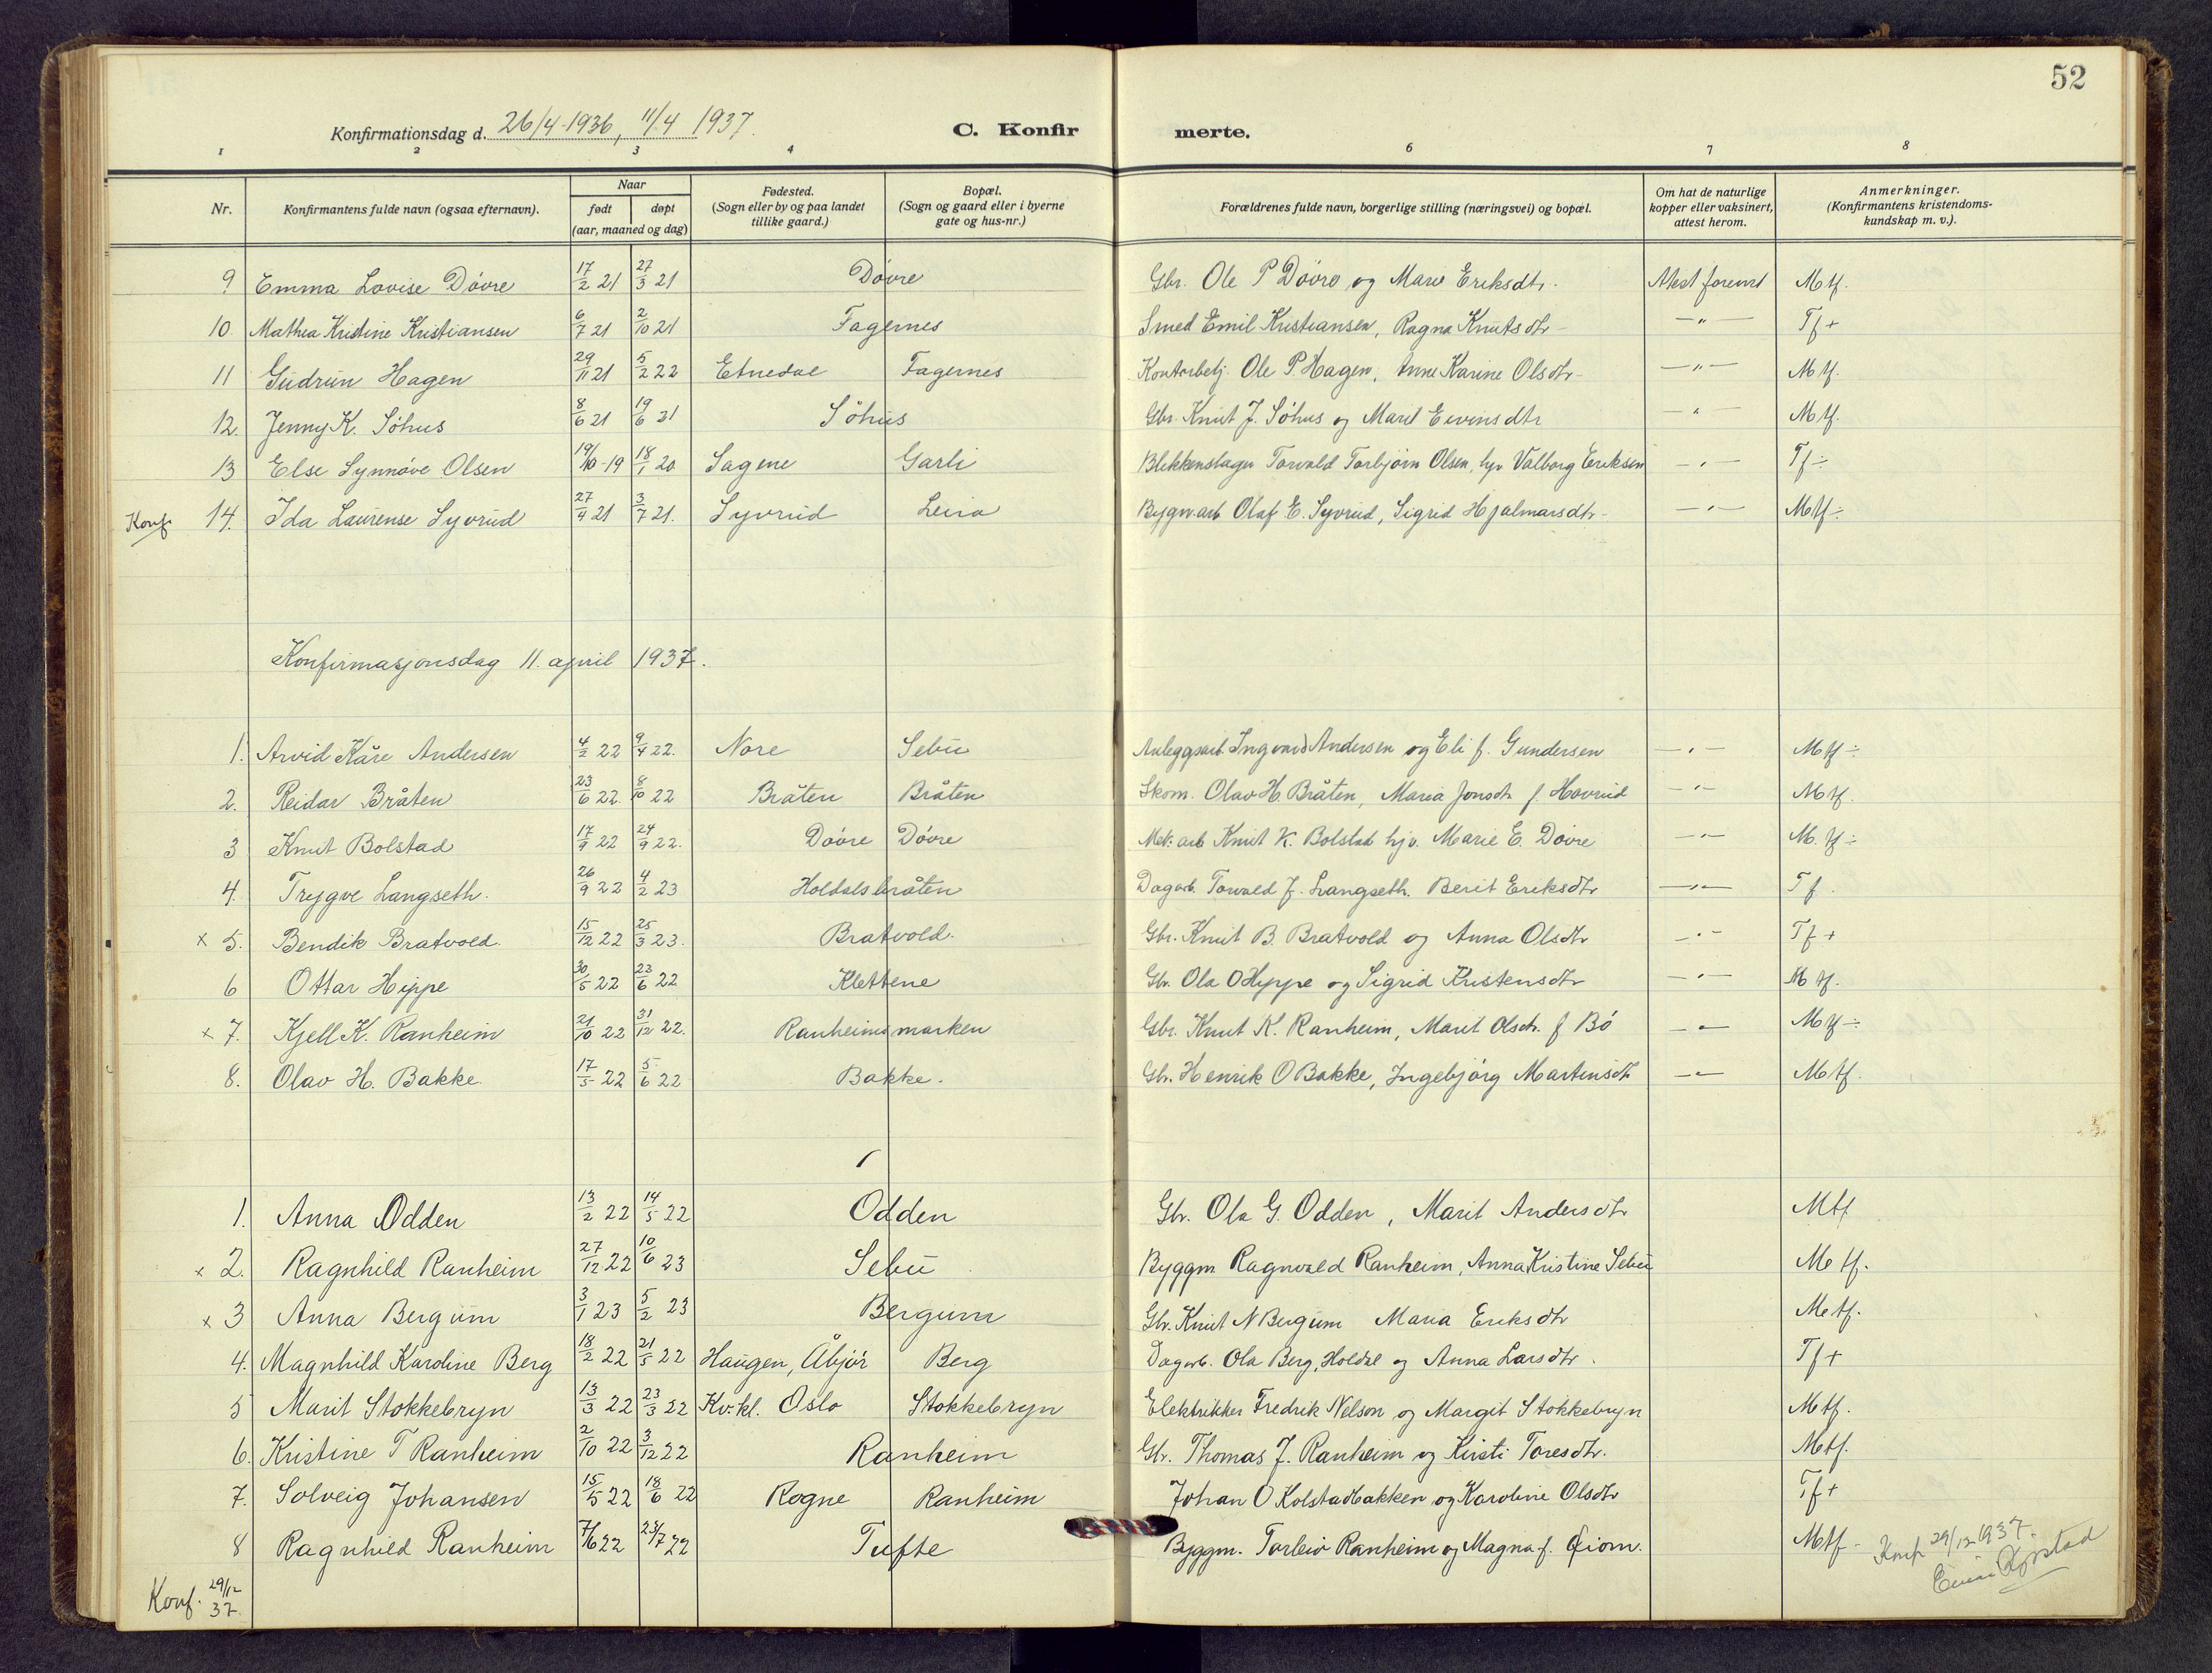 52
Konfirmationsdag d. 26/4-1936, 11/4 1937.
C. Konfirmerte.
1 2 3 4 6 7 8
Nr. Konfirmantens fulde navn (ogsaa efternavn). Naar født døpt (aar, maaned og dag) Fødested. (Sogn eller by og paa landet tillike gaard.) Bopæl. (Sogn og gaard eller i byerne gate og hus-nr.) Forældrenes fulde navn, borgerlige stilling (næringsvei) og bopæl. Om hat de naturlige kopper eller vaksinert, attest herom. Anmerkninger. (Konfirmantens kristendomskundskap m. v.).
9 Emma Lovise Dövre 17/2 21 27/3 21 Dövre Gbr. Ole P Dövre og Marie Eriksdtr. Attest forevist Mtf.
10. Mathea Kristine Kristiansen 6/7 21 2/10 21 Fagernes Smed Emil Kristiansen, Ragna Knutsdtr - — " — Tf +
11 Gudrun Hagen 29/11 21 5/2 22 Etnedal Fagernes Kontorbetj. Ole P. Hagen, Anne Karine Olsdtr - — " — Mtf.
12. Jenny K. Söhus 8/6 21 19/6 21 Söhus Gbr. Knut J. Söhus og Marit Eivinsdtr — " — Mtf.
13 Else Synnöve Olsen 19/10-19 18/1 20 Sagene Garli Blikkenslager Torvald Torbjörn Olsen, hju Valborg Eriksen — " — Tf ÷
Konf 14. Ida Laurense Syvrud 27/4 21 3/7 21. Syvrud Leira Bygn.arb Olaf E. Syvrud, Sigrid Hjalmarsdtr - — " — Mtf ÷
Konfirmasjonsdag 11. april 1937.
1. Arvid Kåre Andersen 4/2 22 9/4 22. Nore Sebu Anleggsarb. Ingvard Andersen og Eli f. Gundersen — " — Mtf ÷
2. Reidar Bråten 23/6 22. 8/10 22 Bråten Bråten Skom. Olav H. Bråten, Maria Jonsdtr f. Hovrud — " — Mtf.
3 Knut Bolstad 17/9 22 24/9 22. Dövre Dövre Mek: arb Knut K. Bolstad hju. Marie E. Dövre — " — M.tf ÷
4. Trygve Langseth. 26/9 22 4/2 23 Holdalsbråten Dagarb. Torvald J. Langseth. Berit Eriksdtr — " — Tf.
x 5. Bendik Bratvold. 15/12 22 25/3 23. Bratvold. Gbr. Knut B. Bratvold og Anna Olsdtr — " — Tf +
6 Ottar Hippe 30/5 22 22/6 22 Klettene Gbr. Ola O Hippe og Sigrid Kristensdtr — " — Mtf.
x 7. Kjell K. Ranheim 21/10 22 31/12 22. Ranheimsmarken Gbr. Knut K. Ranheim, Marit Olsdtr. f Bö — " — Mtf ÷
8. Olav H. Bakke. 17/5 22 5/6 22 Bakke. Gbr. Henrik O Bakke, Ingebjörg Martinsdtr — " — Mtf.
1. Anna Odden 13/2 22 14/5 22 Odden Gbr. Ola G. Odden, Marit Andersdtr Mtf
x 2. Ragnhild Ranheim 27/12 22 10/6 23 Sebu Byggm Ragnvald Ranheim, Anna Kristine Sebu Mtf.
x 3 Anna Bergum 3/1 23 5/2 23 Bergum Gbr. Knut N Bergum Maria Eriksdtr Mtf.
4. Magnhild Karoline Berg 18/2 22 21/5 22 Haugen, Åbjör Berg Dagarb. Ola Berg, Holdal og Anna Larsdtr. Tf +
5 Marit Stokkebryn 13/3 22 23/3 22 Kv.kl. Oslo Stokkebryn Elektrikker Fredrik Nelson og Margit Stokkebryn Mtf.
6. Kristine T Ranheim 2/10 22 3/12 22 Ranheim Gbr. Thomas J. Ranheim og Kirsti Toresdtr. Mtf.
7. Solveig Johansen 15/5 22 18/6 22 Rogne Ranheim Johan O Kolstadbakken og Karoline Olsdtr Tf +
8 Ragnhild Ranheim 7/6 22 23/7 22 Tufte Byggm. Torleiv Ranheim og Magna f. Mtf - Konf 29/12 1937.
Konf. 29/12 37.